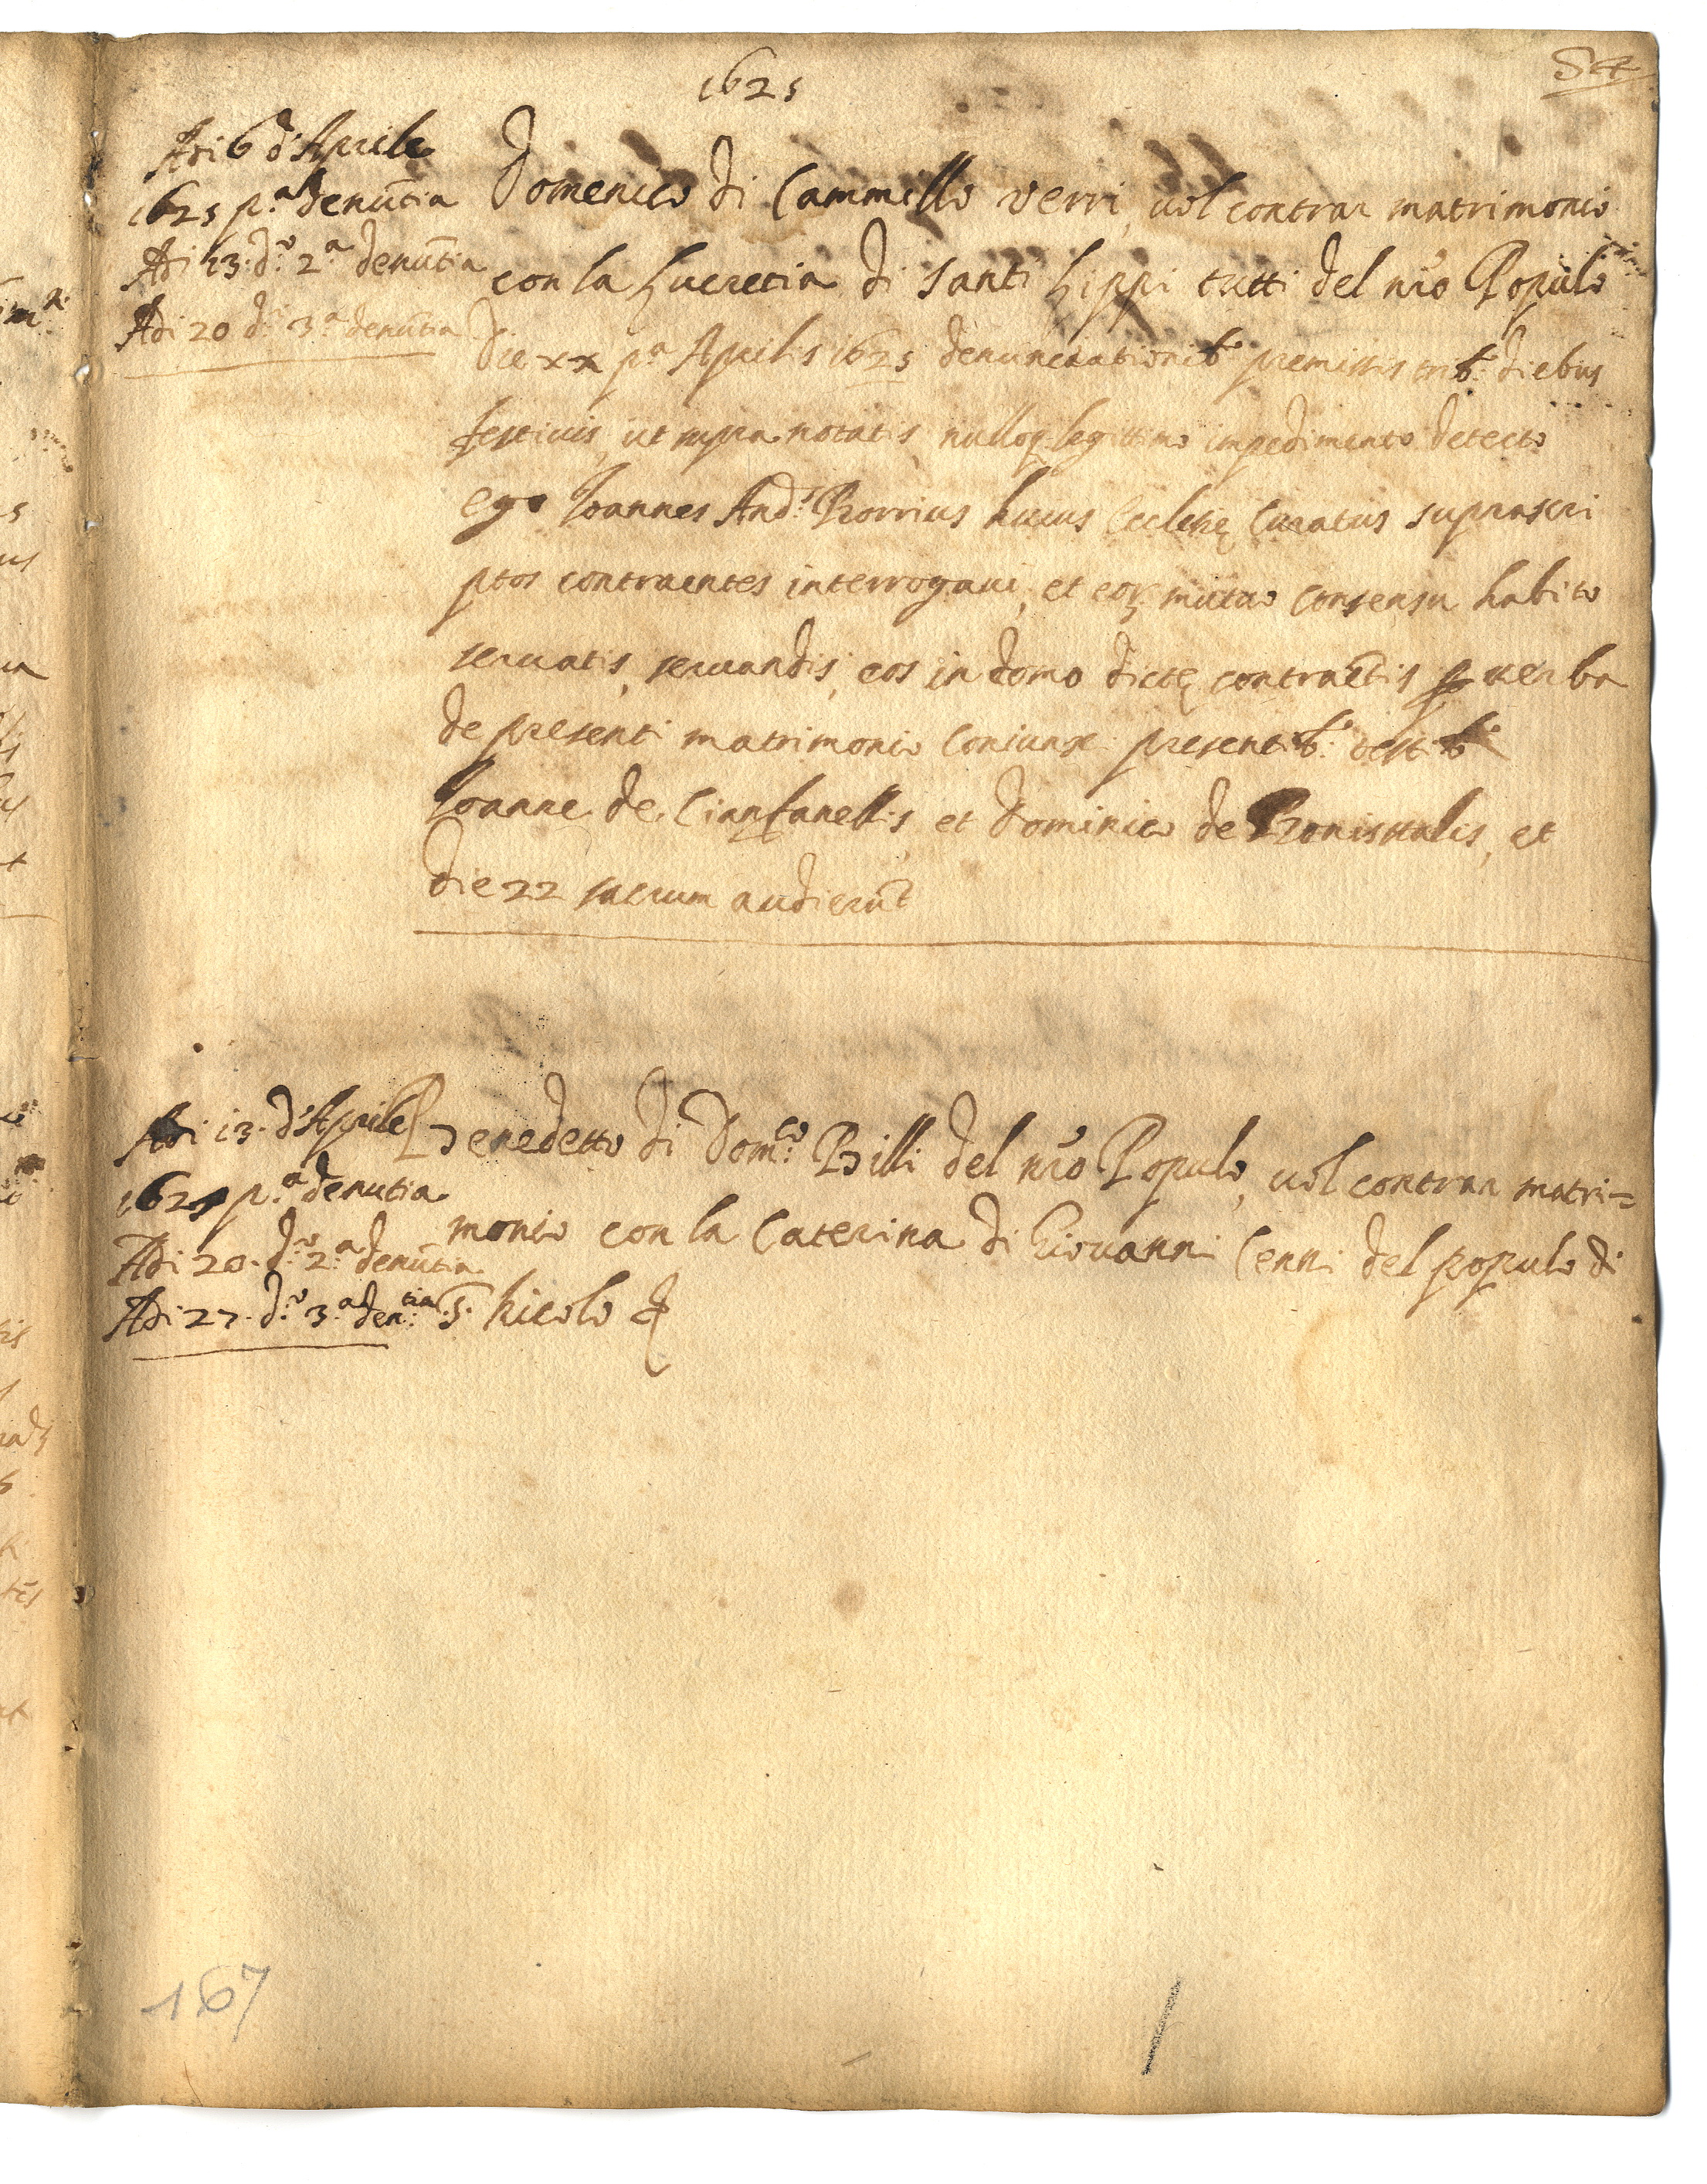 1625
54
Adi 6 d'Aprile
1625 p.ª denūtia
Adi 13. d.º 2.ª denūtia
Adi 20 d.º 3.ª denūtia
Domenico di Cammillo Verri, uol contrar matrimonio
con la Lucretia di Santi Lippi tutti del nr̃o Populo
Die xx pª Aprilis 1625 denunciationib: premissis trib: diebus
festiuis, ut supra notatis, nulloq; legittimo impedimento detecto
ego Ioannes And.s Borrius huius Ecclesię Curatus suprascri
ptos contraentes interrogaui, et eorų mutuo consensu habito
seruatis, seruandis, eos in domo dictę contraētis ꝑ uerba
de presenti matrimonio coniunxi presentib: testib:
Ioanne de Cianfanellis et Dominico de et
die 22 sacrum audierūt
Adi 13. d'Aprile
1625 p.ª denutia
Adi 20. d.º 2.ª denūtia
Adi 27. d.º 3.ª den.tia
Benedetto di Dom.co Billi del nr̃o Populo, uol contrar matri=
monio con la Caterina di Giouanni Cenni del populo di
S. Nicolo &
167